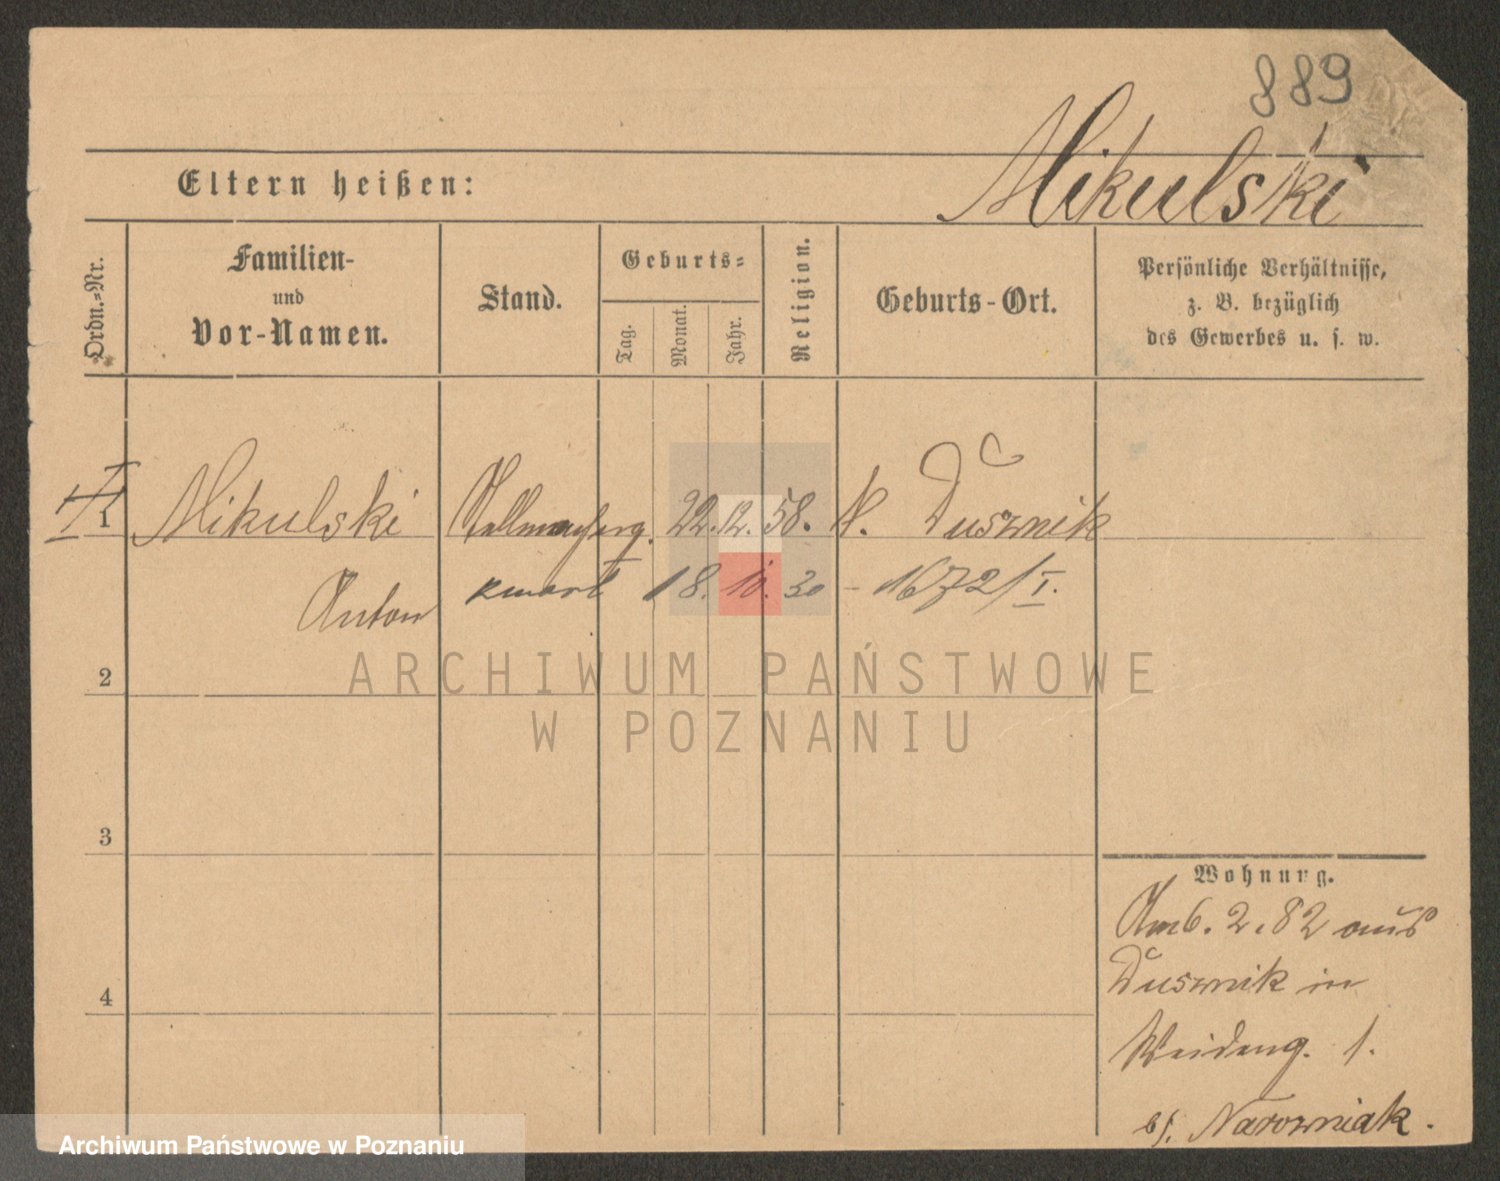 889
Mikulski
Eltern heißen:
Ordn.-Nr.
Familien-
und
Vor-Namen.
Stand.
Geburts-
Tag.
Monat.
Jahr.
Religion.
Geburts-Ort.
Persönliche Verhältnisse,
z. B. bezüglich
des Gewerbes u. s. w.
1 Mikulski 22. 12. 58. K. Dusznik
Anton zmarł 18. 10. 30 - 1672/I.
2
3
4
Wohnung.
Am 6. 2. 82 aus
Dusznik in
Weideng. 1.
b/. Narozniak.
ARCHIWUM PAŃSTWOWE
W POZNANIU
Archiwum Państwowe w Poznaniu